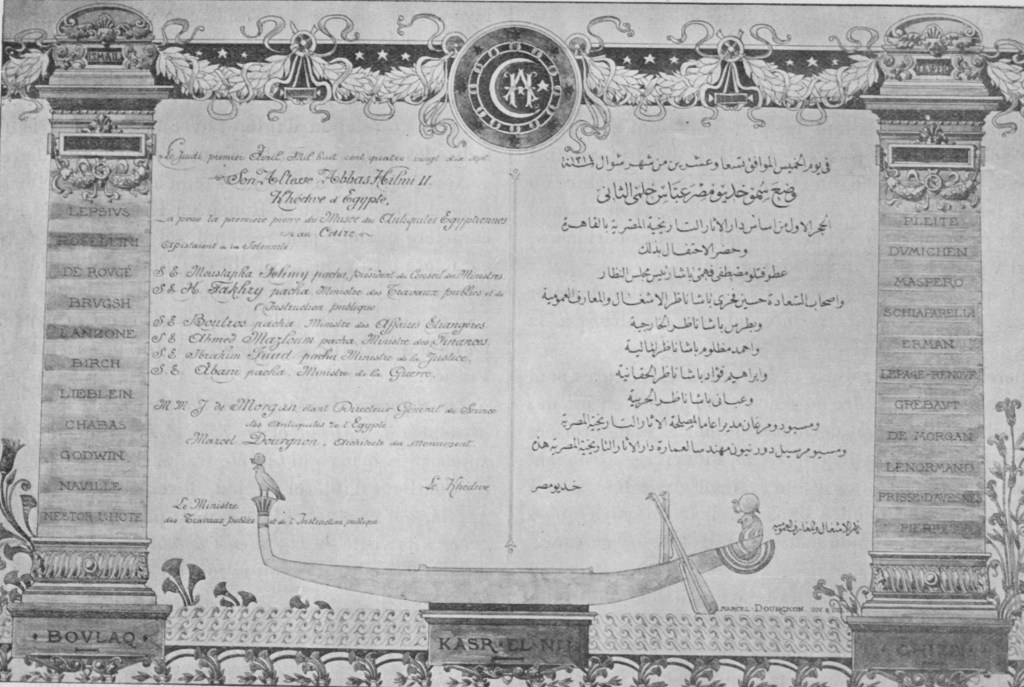 LEPSIUS
ROSELLINI
DE ROUGÉ
BRUGSH
LANZONE
BIRCH
LIEBLEIN
CHABAS
GODWIN
NAVILLE
NESTOR L'HOTE
BOVLAQ
Le jeudi premier Avril Mil huit cent quatre vingt dix sept.
Son Altesse Abbas Hilmi II
Khédive d'Egypte,
La posé la première pierre du Musée des Antiquités Egyptiennes
au Caire
Assistaient à la Solennité
S. E. Moustapha Fehmy pacha, président du Conseil des Ministres
S. E. H. Fakhry pacha, Ministre des Travaux publics et de
l'Instruction publique
S. E. Boutros pacha, Ministre des Affaires Etrangères
S. E. Ahmed Mazloum pacha, Ministre des Finances,
S. E. Ibrahim Fuad pacha Ministre de la Justice,
S. E. Abani pacha, Ministre de la Guerre,
M. M. J. de Morgan étant Directeur Général du Service
des Antiquités de l'Egypte
Marcel Dourgnon, Architecte du Monument
Le Khédive
Le Ministre
des Travaux publics et de l'Instruction publique
في يوم الخميس الموافق تسعا وعشرين من شهر شوال سنة ١٣١٤
وضع سمو خديو مصر عباس حلمى الثانى
الحجر الاول من اساس دار الآثار التاريخية المصرية بالقاهرة
وحضر الاحتفال بذلك
عطوفتلو مصطفى فهمى باشا رئيس مجلس النظار
واصحاب السعادة حسين فخرى باشا ناظر الاشغال والمعارف العمومية
وبطرس باشا ناظر الخارجية
واحمد مظلوم باشا ناظر المالية
وابراهيم فؤاد باشا ناظر الحقانية
وعبانى باشا ناظر الحربية
ومسيو دو مرغان مديرا عاما لمصلحة الآثار التاريخية المصرية
ومسيو مرسيل دورنيون مهندسا لعمارة دار الآثار التاريخية المصرية هذه
خديو مصر
ناظر الاشغال والمعارف العمومية
MARCEL-DOURGNON
KASR-EL-NIL
PLEITE
DVMICHEN
MASPERO
SCHIAPARELLI
ERMAN
LEPAGE-RENOUF
GRÉBAUT
DE MORGAN
LENORMAND
PRISSE-D'AVESNES
PIERRET
GHIZEH